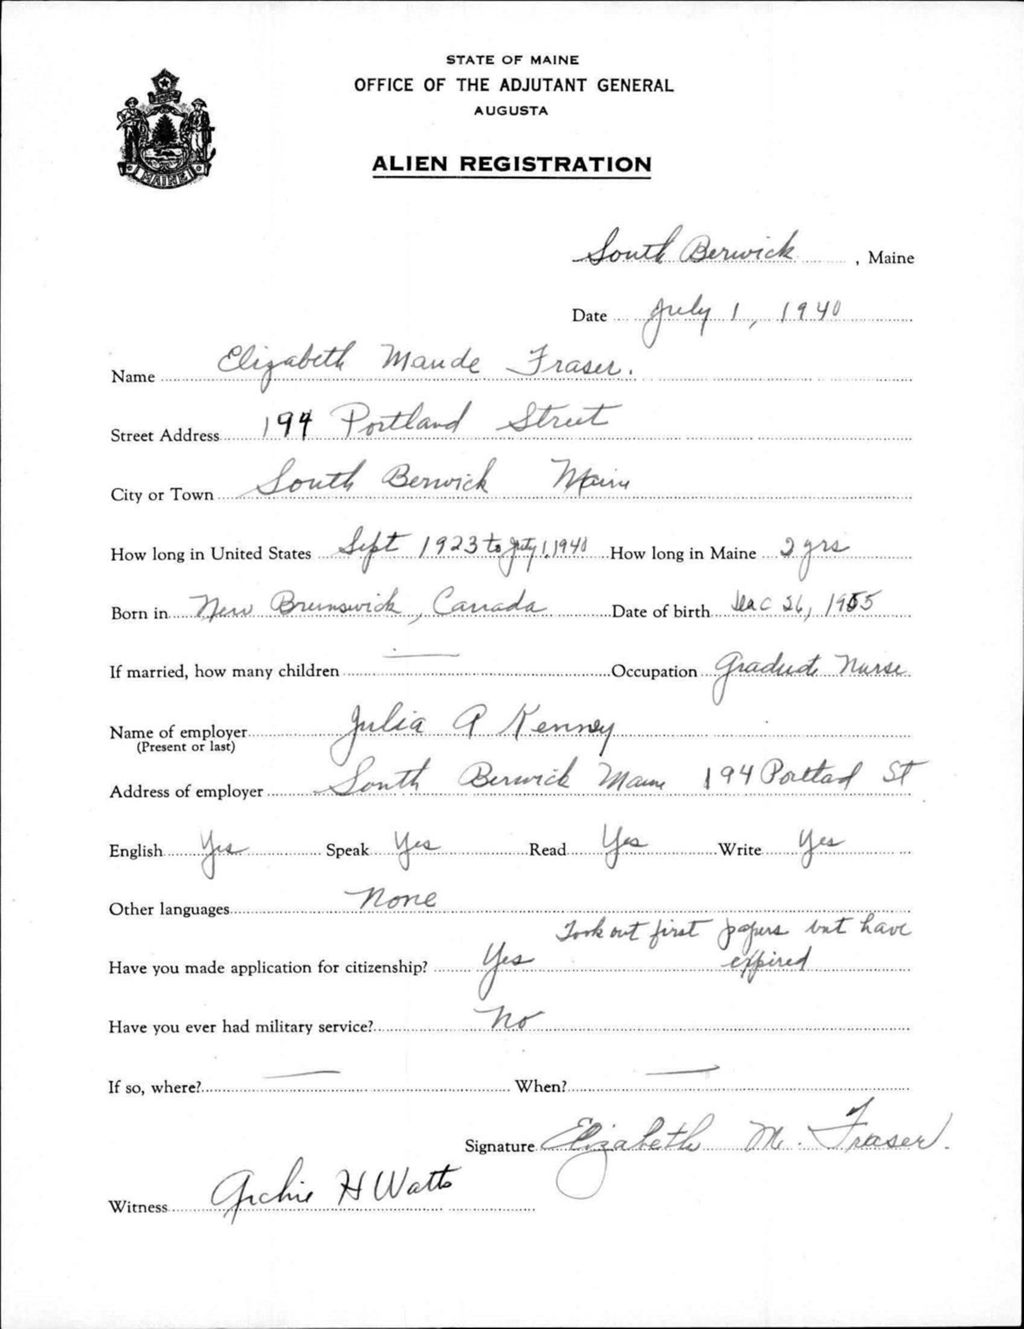 STATE OF MAINE
OFFICE OF THE ADJUTANT GENERAL
AUGUSTA
ALIEN REGISTRATION
MAINE
South Berwick, Maine
Date July 1, 1940
Name Elizabeth Maude Fraser.
Street Address 194 Portland Street
City or Town South Berwick Maine
How long in United States Sept 1923 to July 1, 1940 How long in Maine 2 yrs
Born in New Brunswick, Canada Date of birth Dec 26,
If married, how many children — Occupation Graduate Nurse
Name of employer Julia A Kenney
(Present or last)
Address of employer South Berwick Maine 194 Portland St
English Yes Speak Yes Read Yes Write Yes
Other languages None
Took out first papers but have
Have you made application for citizenship? Yes expired
Have you ever had military service? No
If so, where? — When? —
Signature Elizabeth M. Fraser.
Witness Archie H Watts